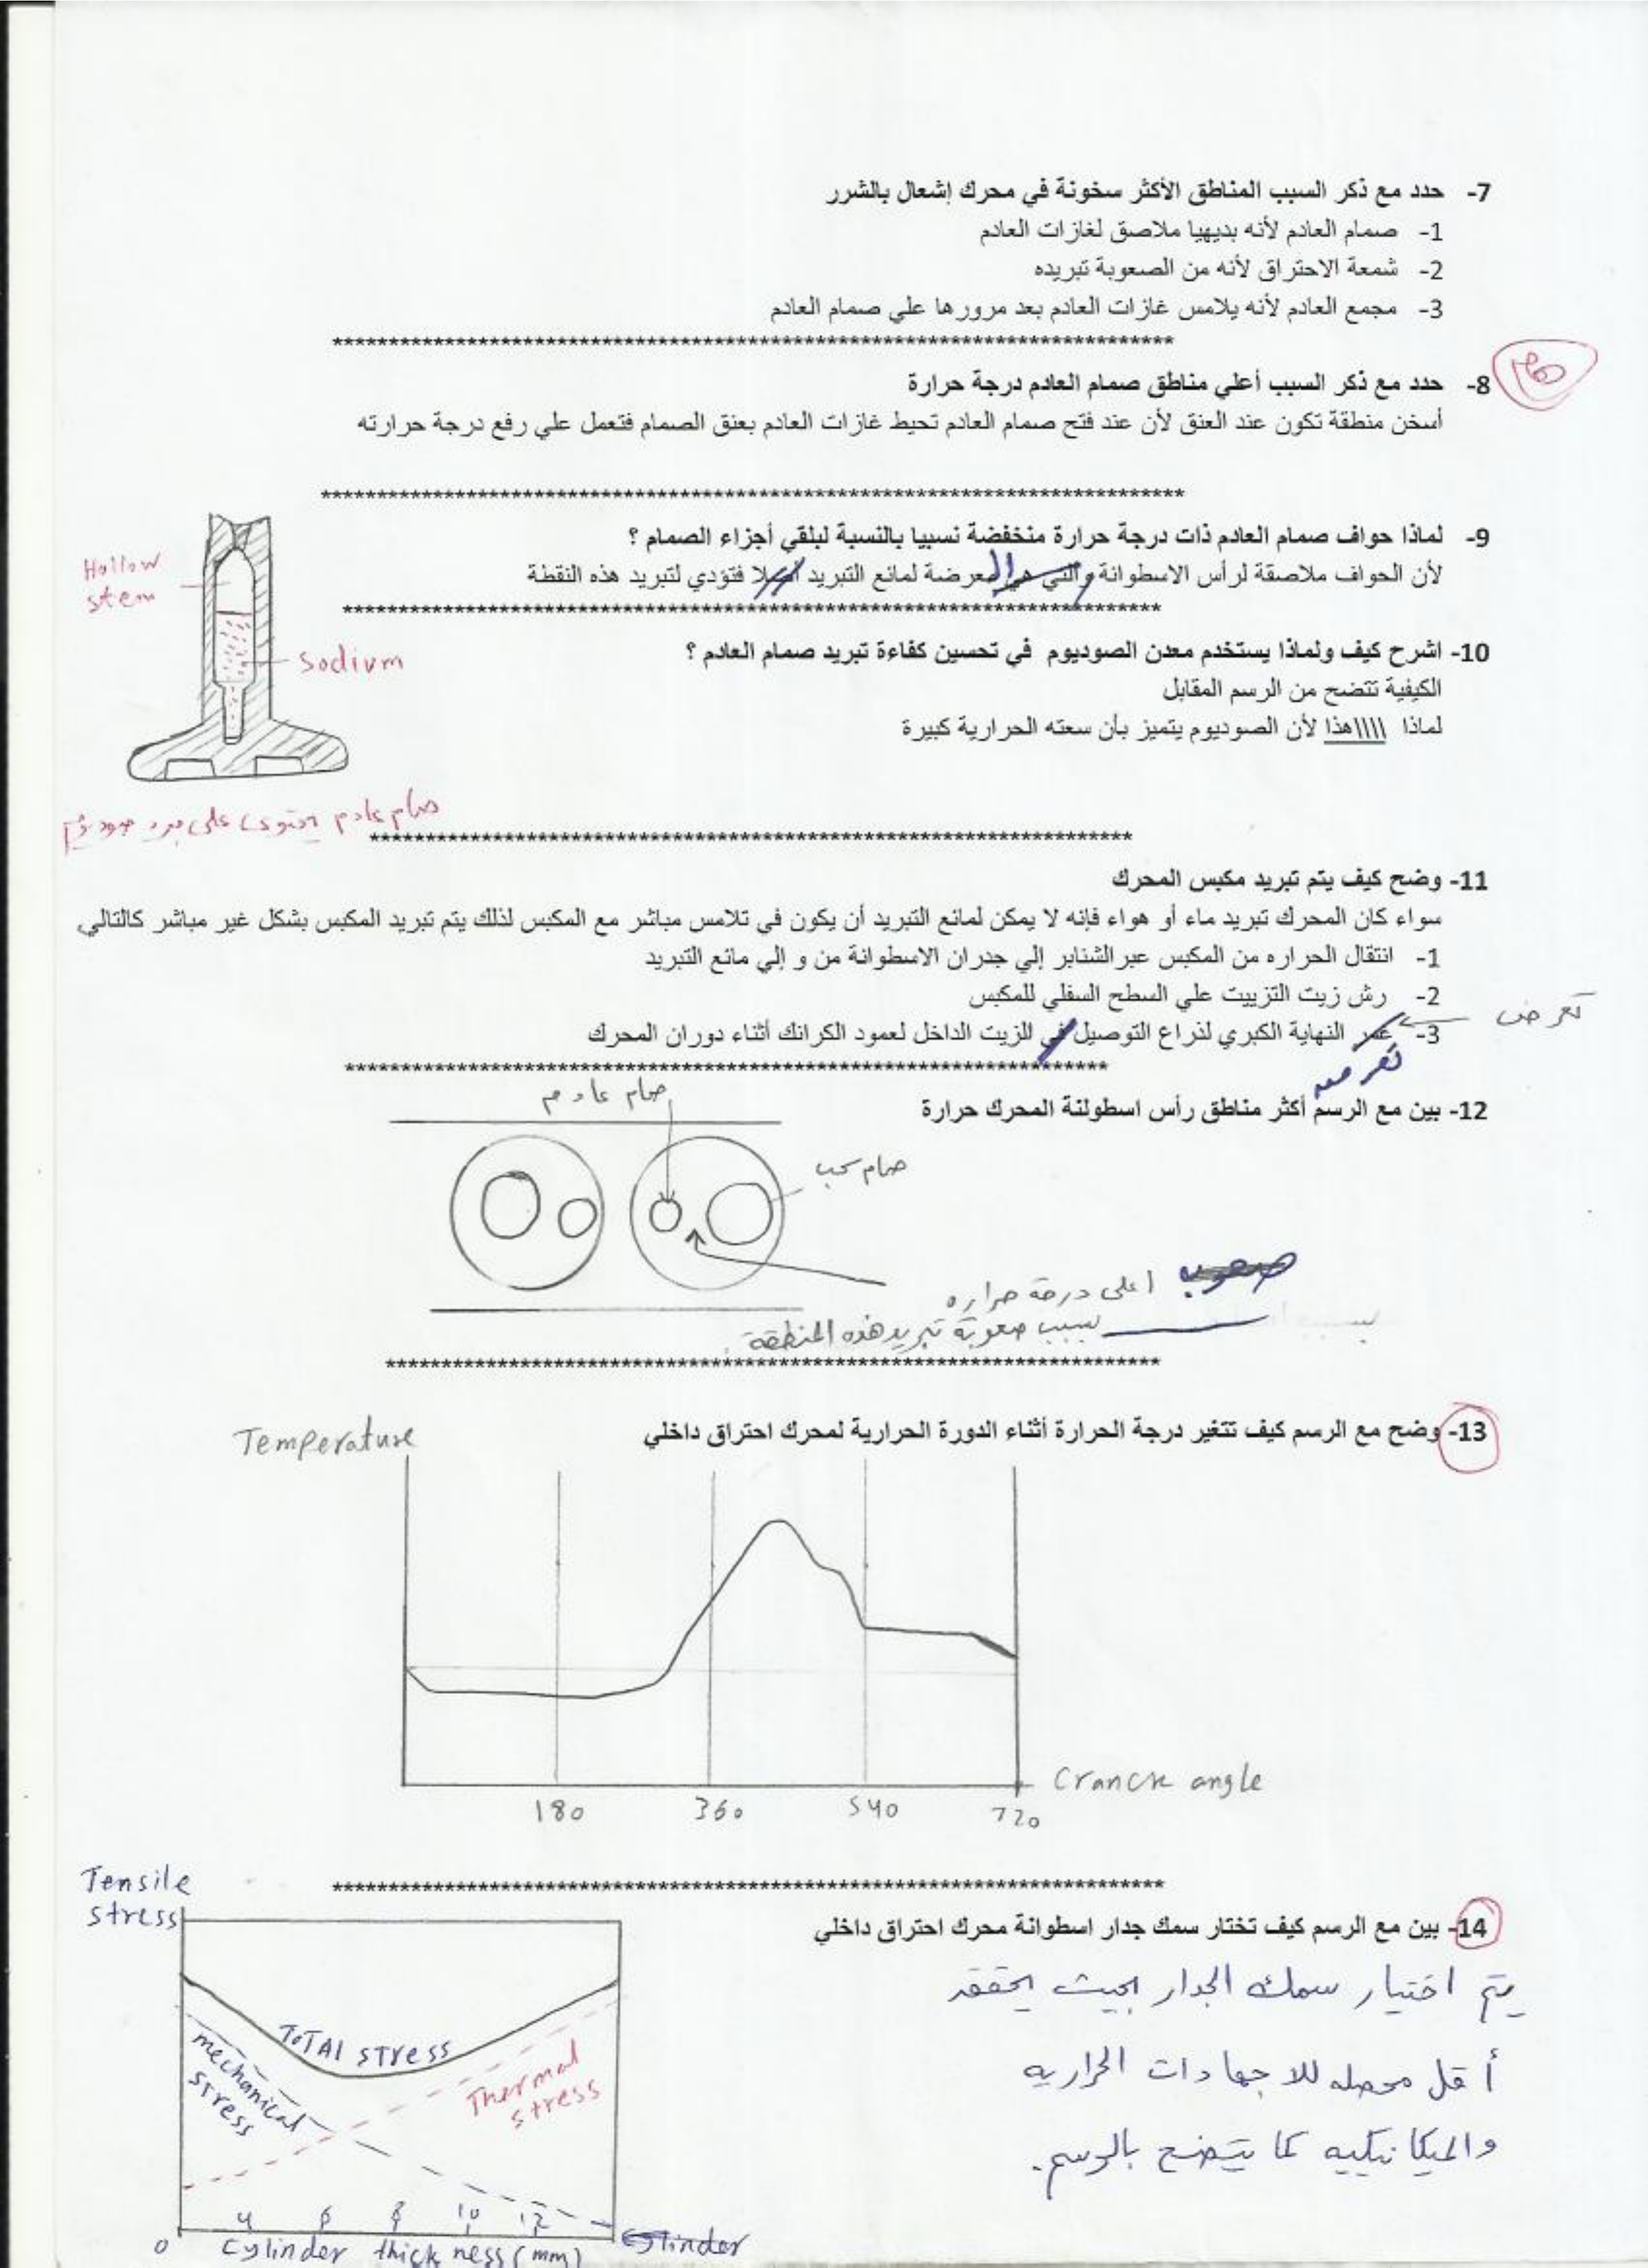 7- حدد مع ذكر السبب المناطق الأكثر سخونة في محرك إشعال بالشرر
1- صمام العادم لأنه بديهيا ملاصق لغازات العادم
2- شمعة الاحتراق لأنه من الصعوبة تبريده
3- مجمع العادم لأنه يلامس غازات العادم بعد مرورها علي صمام العادم
********************************************************************************
8- حدد مع ذكر السبب أعلي مناطق صمام العادم درجة حرارة
أسخن منطقة تكون عند العنق لأن عند فتح صمام العادم تحيط غازات العادم بعنق الصمام فتعمل علي رفع درجة حرارته
********************************************************************************
9- لماذا حواف صمام العادم ذات درجة حرارة منخفضة نسبيا بالنسبة لبلقي أجزاء الصمام ؟
لأن الحواف ملاصقة لرأس الاسطوانة والتي هي المعرضة لمائع التبريد فتؤدي لتبريد هذه النقطة
********************************************************************************
10- اشرح كيف ولماذا يستخدم معدن الصوديوم في تحسين كفاءة تبريد صمام العادم ؟
الكيفية تتضح من الرسم المقابل
لماذا \\\\هذا لأن الصوديوم يتميز بأن سعته الحرارية كبيرة
Hollow
stem
Sodium
صمام عادم يحتوى على
********************************************************************************
11- وضح كيف يتم تبريد مكبس المحرك
سواء كان المحرك تبريد ماء أو هواء فإنه لا يمكن لمائع التبريد أن يكون في تلامس مباشر مع المكبس لذلك يتم تبريد المكبس بشكل غير مباشر كالتالي
1- انتقال الحراره من المكبس عبر الشنابر إلي جدران الاسطوانة من و إلي مائع التبريد
2- رش زيت التزييت علي السطح السفلي للمكبس
تعرض
3- غمر النهاية الكبري لذراع التوصيل في للزيت الداخل لعمود الكرانك أثناء دوران المحرك
********************************************************************************
12- بين مع الرسم أكثر مناطق رأس اسطولنة المحرك حرارة
صمام عادم
صمام سحب
اعلى درجة حراره
بسبب صعوبة تبريد هذه المنطقة
********************************************************************************
13- وضح مع الرسم كيف تتغير درجة الحرارة أثناء الدورة الحرارية لمحرك احتراق داخلي
Temperature
Cranck angle
180 360 540 720
********************************************************************************
14- بين مع الرسم كيف تختار سمك جدار اسطوانة محرك احتراق داخلي
يتم اختيار سمك الجدار بحيث يحقق
أقل محصله للاجهادات الحراريه
والميكانيكيه كما يتضح بالرسم.
Tensile
stress
TOTAl stress
mechanical
stress
Thermal
stress
0 4 6 8 10 12
cylinder thickness (mm)
cylinder